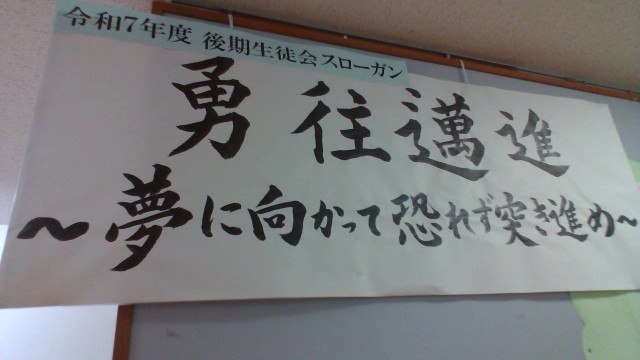 令和7年度 後期生徒会スローガン
勇往邁進
～夢に向かって恐れず突き進め～